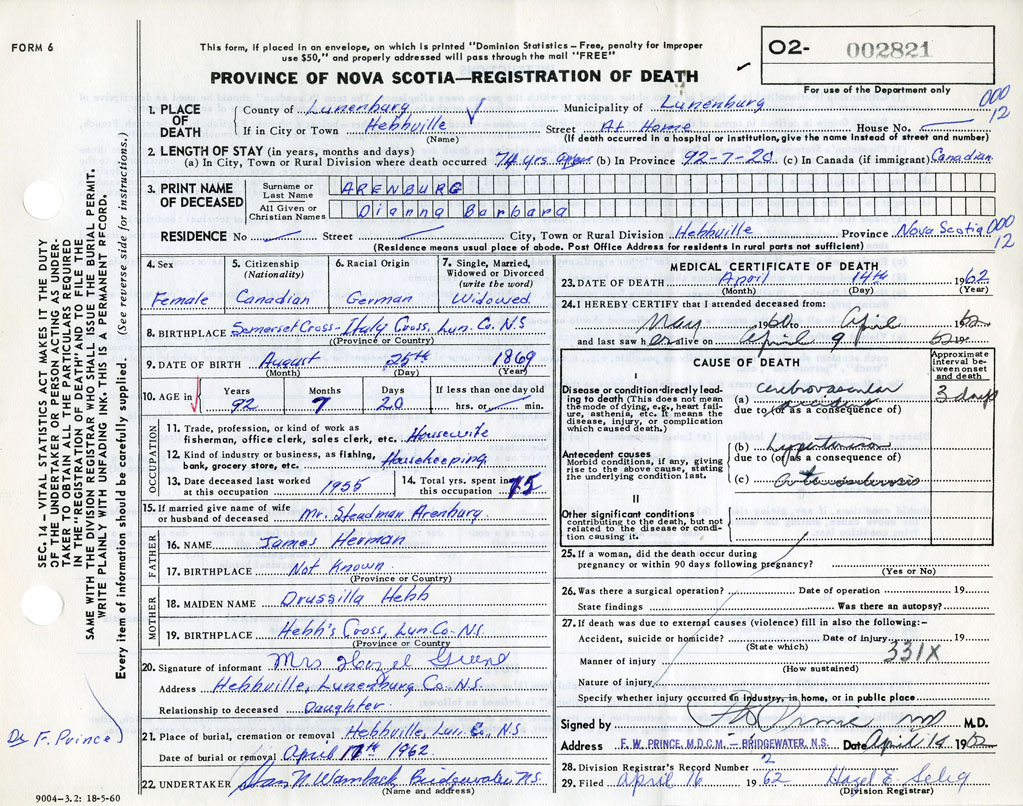 FORM 6
This form, if placed in an envelope, on which is printed "Dominion Statistics — Free, penalty for improper
use $50," and properly addressed will pass through the mail "FREE"
O2- 002821
PROVINCE OF NOVA SCOTIA—REGISTRATION OF DEATH
For use of the Department only
000
12
1. PLACE OF DEATH
County of Lunenburg Municipality of Lunenburg
If in City or Town Hebbville Street At Home House No.
(Name) (If death occurred in a hospital or institution, give the name instead of street and number)
2. LENGTH OF STAY (in years, months and days)
(a) In City, Town or Rural Division where death occurred 74 yrs (b) In Province 92-7-20 (c) In Canada (if immigrant) Canadian
3. PRINT NAME OF DECEASED
Surname or Last Name ARENBURG
All Given or Christian Names Dianna Barbara
RESIDENCE No Street City, Town or Rural Division Hebbville Province Nova Scotia 000
12
(Residence means usual place of abode. Post Office Address for residents in rural parts not sufficient)
4. Sex Female
5. Citizenship (Nationality) Canadian
6. Racial Origin German
7. Single, Married, Widowed or Divorced (write the word) Widowed
8. BIRTHPLACE Somerset Cross-Italy Cross, Lun. Co. N.S
(Province or Country)
9. DATE OF BIRTH August 25th 1869
(Month) (Day) (Year)
10. AGE in Years 92 Months 7 Days 20 If less than one day old hrs. or min.
OCCUPATION
11. Trade, profession, or kind of work as
fisherman, office clerk, sales clerk, etc. Housewife
12. Kind of industry or business, as fishing,
bank, grocery store, etc. Housekeeping
13. Date deceased last worked
at this occupation 1955
14. Total yrs. spent in
this occupation 75
15. If married give name of wife
or husband of deceased Mr. Steadman Arenburg
FATHER
16. NAME James Herman
17. BIRTHPLACE Not Known
(Province or Country)
MOTHER
18. MAIDEN NAME Drussilla Hebb
19. BIRTHPLACE Hebb's Cross, Lun. Co. N.S.
(Province or Country)
20. Signature of informant Mrs Hazel
Address Hebbville, Lunenburg Co. N.S.
Relationship to deceased Daughter
21. Place of burial, cremation or removal Hebbville, Lun. Co, N.S
Date of burial or removal April 17th 1962
22. UNDERTAKER Bridgewater N.S.
(Name and address)
9004-3.2: 18-5-60
MEDICAL CERTIFICATE OF DEATH
23. DATE OF DEATH April 14th 1962
(Month) (Day) (Year)
24. I HEREBY CERTIFY that I attended deceased from:
May 1960 to April 1962
and last saw her alive on April 9 62 19
CAUSE OF DEATH
Approximate interval between onset and death
I
Disease or condition directly leading
to death (This does not mean
the mode of dying, e.g., heart failure,
asthenia, etc. It means the
disease, injury, or complication
which caused death.)
(a) cerebrovascular accident 3 days
due to (or as a consequence of)
Antecedent causes
Morbid conditions, if any, giving
rise to the above cause, stating
the underlying condition last.
(b) hypertension
due to (or as a consequence of)
(c) arteriosclerosis
II
Other significant conditions
contributing to the death, but not
related to the disease or condition
causing it.
25. If a woman, did the death occur during
pregnancy or within 90 days following pregnancy?
(Yes or No)
26. Was there a surgical operation? Date of operation 19
State findings Was there an autopsy?
27. If death was due to external causes (violence) fill in also the following:-
Accident, suicide or homicide? Date of injury 19
(State which) 331X
Manner of injury
(How sustained)
Nature of injury
Specify whether injury occurred in industry, in home, or in public place
Signed by F W Prince MD M.D.
Address F. W. PRINCE, M.D.C.M. — BRIDGEWATER, N.S. Date April 14 1962
28. Division Registrar's Record Number 2
29. Filed April 16 1962 Hazel E. Selig
(Division Registrar)
SEC. 14—VITAL STATISTICS ACT MAKES IT THE DUTY
OF THE UNDERTAKER OR PERSON ACTING AS UNDERTAKER
TO OBTAIN ALL THE PARTICULARS REQUIRED
IN THE "REGISTRATION OF DEATH" AND TO FILE THE
SAME WITH THE DIVISION REGISTRAR WHO SHALL ISSUE THE BURIAL PERMIT.
WRITE PLAINLY WITH UNFADING INK. THIS IS A PERMANENT RECORD.
Every item of information should be carefully supplied. (See reverse side for instructions.)
Dr F. Prince